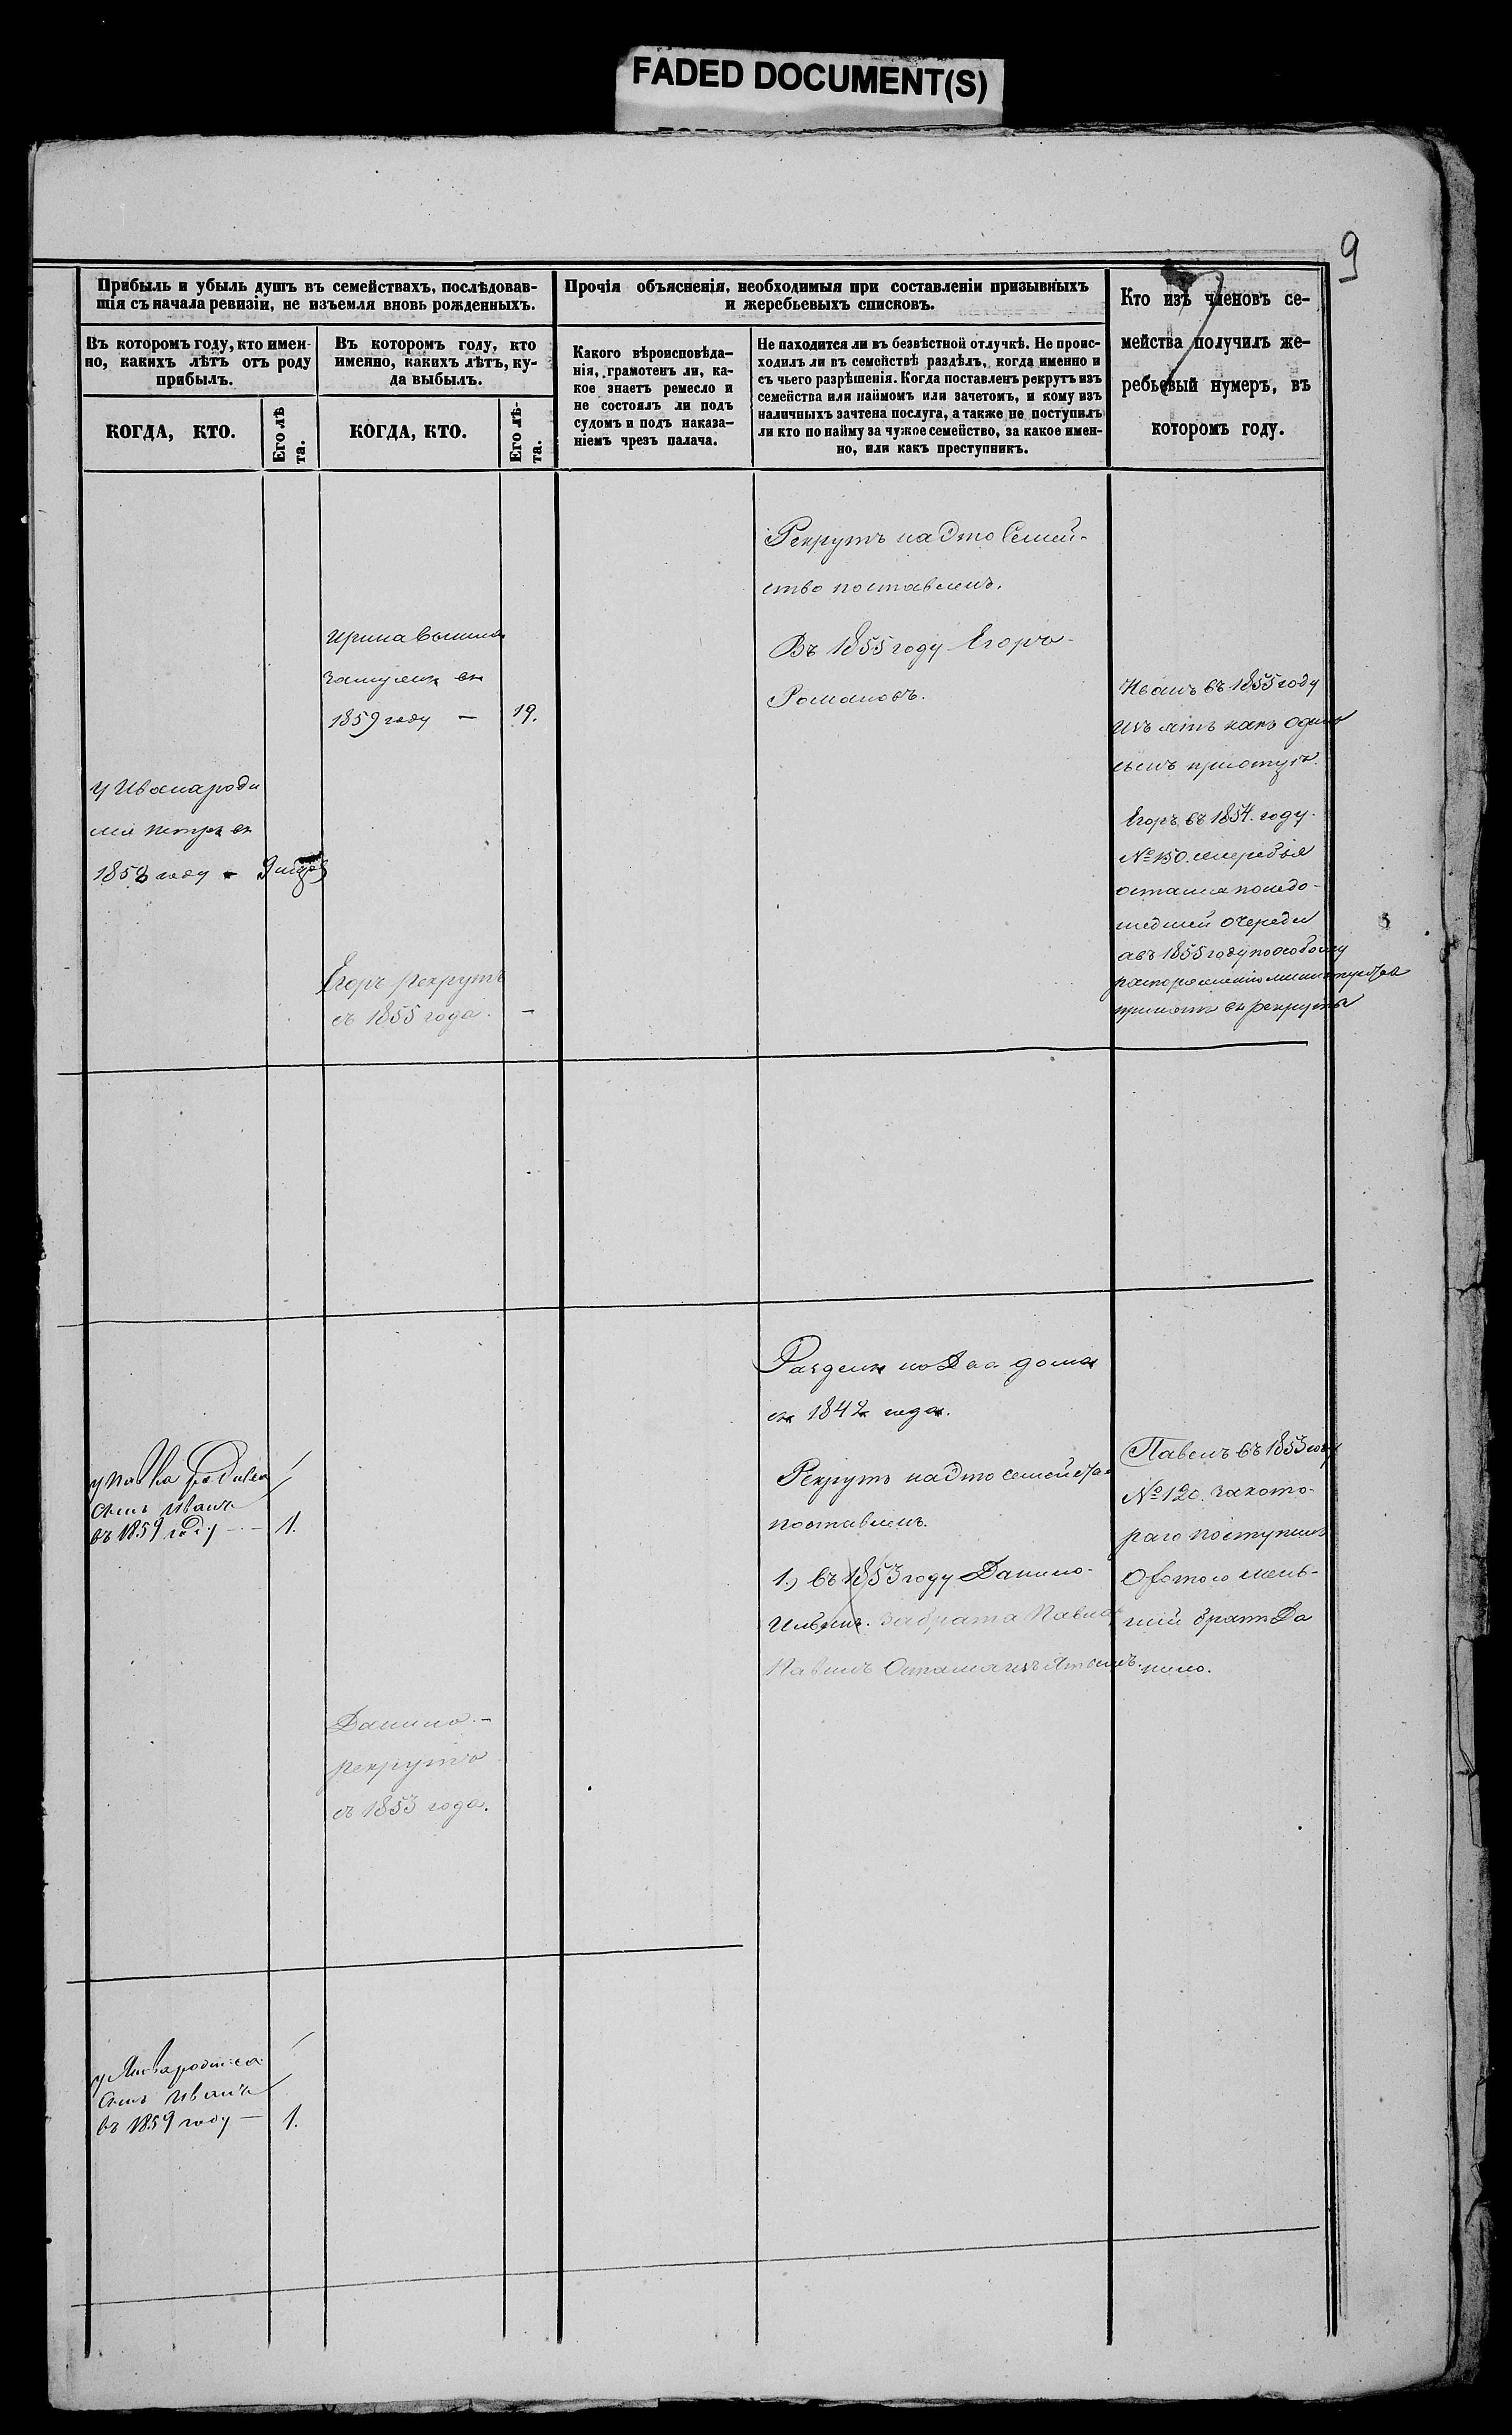 FADED DOCUMENT(S)
9
Прибыль и убыль душъ въ семействахъ, послѣдовав-
шія съ начала ревизіи, не изъемля вновь рожденныхъ.
Въ которомъ году, кто имен-
но, какихъ лѣтъ отъ роду
прибылъ.
КОГДА, КТО.
Его лѣ
та.
Въ которомъ году, кто
именно, какихъ лѣтъ, ку-
да выбылъ.
КОГДА, КТО.
Его лѣ-
та.
Прочія объясненія, необходимыя при составленіи призывныхъ
и жеребьевыхъ списковъ.
Какого вѣроисповѣда-
нія, грамотенъ ли, ка-
кое знаетъ ремесло и
не состоялъ ли подъ
судомъ и подъ наказа-
ніемъ чрезъ палача.
Не находится ли въ безвѣстной отлучкѣ. Не проис-
ходилъ ли въ семействѣ раздѣлъ, когда именно и
съ чьего разрѣшенія. Когда поставленъ рекрутъ изъ
семейства или наймомъ или зачетомъ, и кому изъ
наличныхъ зачтена послуга, а также не поступилъ
ли кто по найму за чужое семейство, за какое имен-
но, или какъ преступникъ.
Кто изъ членовъ се-
мейства получилъ же-
ребьевый нумеръ, въ
которомъ году.
Рекрутъ на Это Семей-
ство поставленъ.
Въ 1855 году Егоръ
Романовъ.
Ирина вышла
замужъ въ
1859 году — 19.
у Ивана роди
лся Петръ въ
1858 году
Егоръ рекрутъ
съ 1855 года. —
Иванъ въ 1855 году
изъятъ какъ один
Егоръ въ 1854. году.
№ 150. жеребья
остался по недо-
шедшей очереди
а въ 1855 году по особому
распоряженію министерства
принятъ въ рекруты
Разделъ на Два дома
съ 1842 года.
Рекрутъ на Это семейство
поставленъ.
1.) въ 1853 году Данило
Ильинъ. За брата Павла,
Павелъ Остался изъятымъ.
Павелъ въ 1853 году
№ 120. за кото-
раго поступилъ
Охотою мень-
шій братъ Да
нило.
у Павла родился
Сынъ Иванъ
въ 1859 году — 1.
Данило. —
рекрутъ
съ 1853 года.
у родился
Сынъ Иванъ
въ 1859 году — 1.